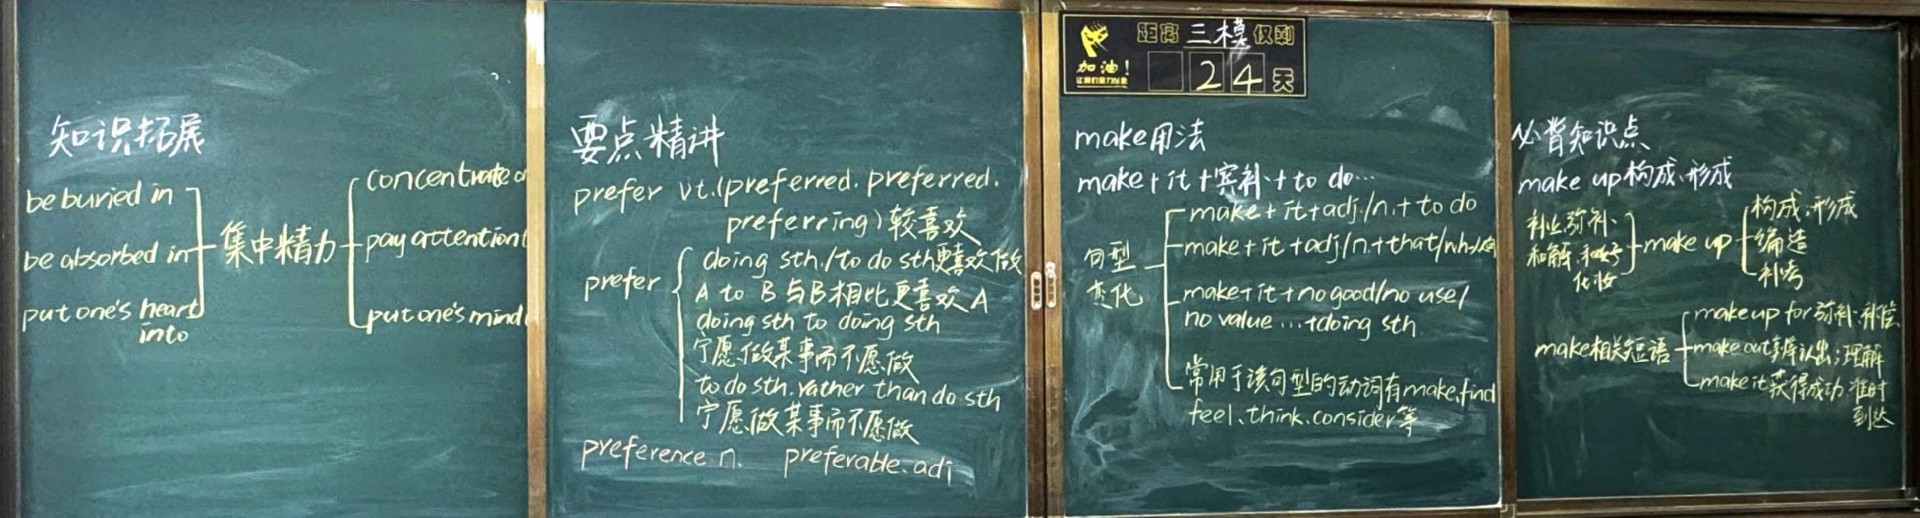 知识拓展
be buried in
be absorbed in
put one's heart
into
集中精力
concentrate o
pay attention t
put one's mind
要点精讲
prefer vt.(preferred. preferred.
preferring) 较喜欢
prefer
doing sth./to do sth更喜欢做
A to B 与B相比更喜欢A
doing sth to doing sth
宁愿做某事而不愿做
to do sth. rather than do sth
宁愿做某事而不愿做
preference n. preferable. adj
距离 三模 仅剩
加油!
24天
make用法
make + it + 宾补 + to do…
句型
变化
make + it + adj./n. + to do
make + it + adj/n + that/wh-
make + it + no good/no use/
no value … + doing sth
常用于该句型的动词有make、find
feel、think、consider 等
必背知识点
make up 构成、形成
补上、弥补、
和解、和好
化妆
make up
构成、形成
编造
补考
make相关短语
make up for 弥补、补偿
make out 认出;理解
make it 获得成功、准时
到达